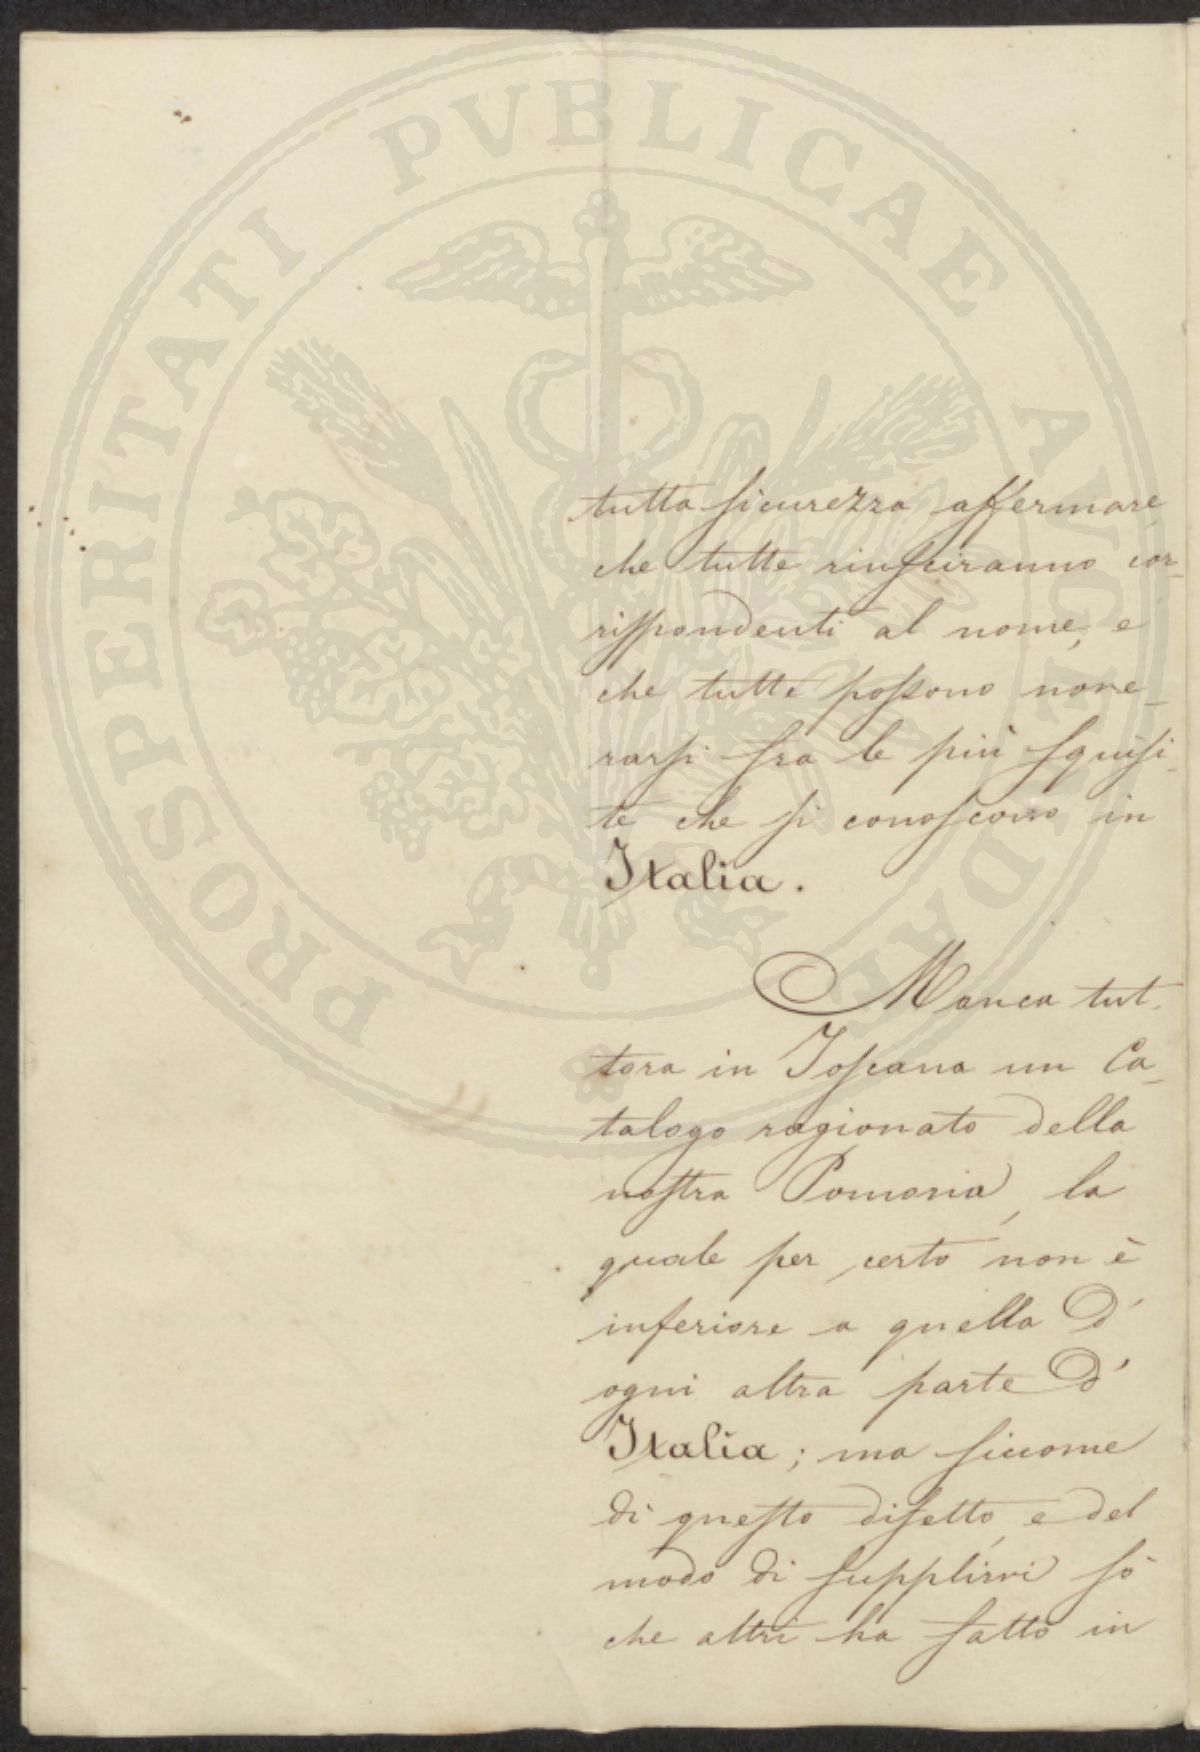 PROSPERITATI PVBLICAE AVGENDAE
tutta sicurezza affermare
che tutte riusciranno cor-
rispondenti al nome, e
che tutte possono nove-
rarsi fra le più squisi-
te che si conoscono in
Italia.
Manca tut-
tora in Toscana un Ca-
talogo ragionato della
nostra Pomona, la
quale per certo non è
inferiore a quella d'
ogni altra parte d'
Italia; ma siccome
di questo difetto, e del
modo di supplirvi sò
che altri ha fatto in